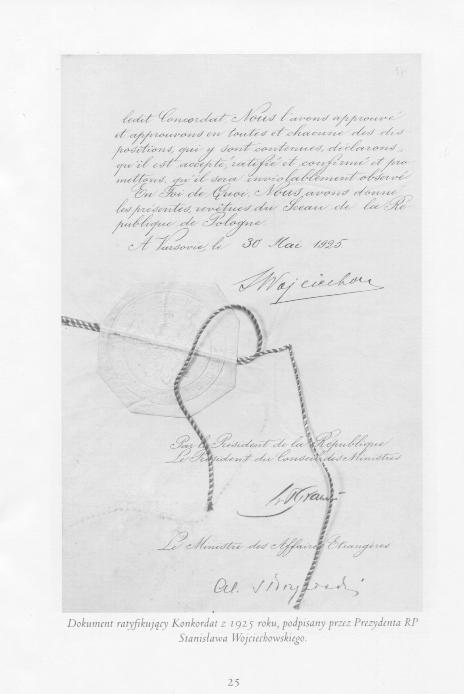 ledit Concordat, Nous l'avons approuvé
et approuvons en toutes et chacune des dis-
positions, qui y sont contenues, déclarons,
qu'il est accepté, ratifié et confirmé et pro
mettons, qu'il sera inviolablement observé
En Foi de Quoi, Nous, avons donné
les présentes, revêtues du Sceau de la Ré-
publique de Pologne.
A Varsovie, le 30 Mai 1925
SWojciechow
Par le Président de la République
Le Président du Conseil des Ministres
Le Ministre des Affaires Etrangères
Al.
Dokument ratyfikujący Konkordat z 1925 roku, podpisany przez Prezydenta RP
Stanisława Wojciechowskiego.
25